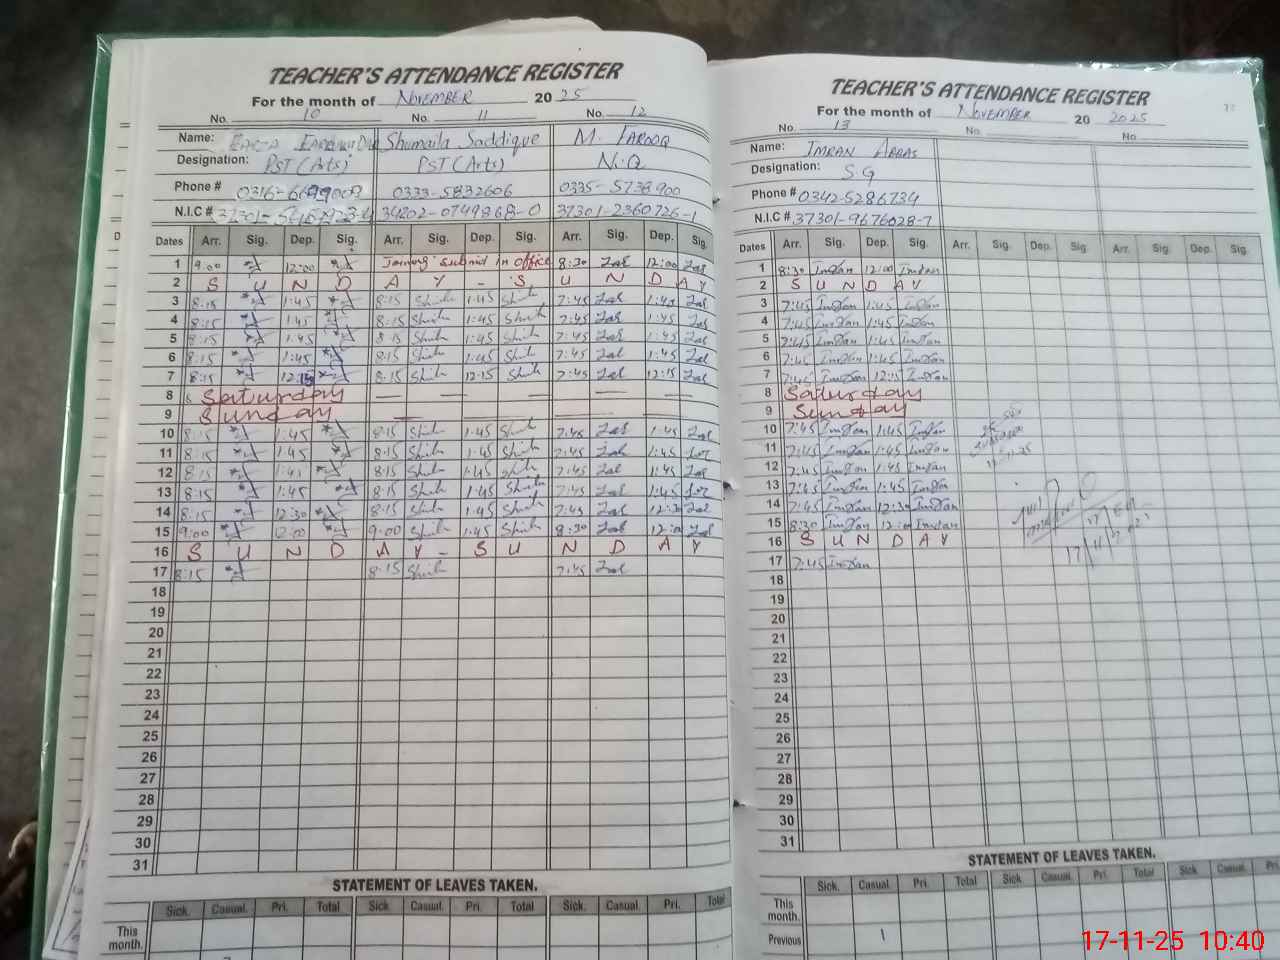 TEACHER'S ATTENDANCE REGISTER
For the month of NOVEMBER 20 25
No. 10 No. 11 No. 12
Name: Shumaila Saddique M. FAROOQ
Designation: PST (Arts) PST (Arts) N.Q
Phone # 0333-5832606 0335-5738900
N.I.C # 34202-0749868-0 37301-2360726-1
Dates Arr. Sig. Dep. Sig. Arr. Sig. Dep. Sig. Arr. Sig. Dep. Sig.
1 9:00 12:00 in office 8:30 12:00
2 S U N D A Y - S U N D A Y
3 8:15 1:45 8:15 1:45 7:45 1:45
4 8:15 1:45 8:15 1:45 7:45 1:45
5 8:15 1:45 8:15 1:45 7:45 1:45
6 8:15 1:45 8:15 1:45 7:45 1:45
7 8:15 12:15 8:15 12:15 7:45 12:15
8 Saturday
9 Sunday
10 8:15 1:45 8:15 1:45 7:45 1:45
11 8:15 1:45 8:15 1:45 7:45 1:45
12 8:15 1:45 8:15 1:45 7:45 1:45
13 8:15 1:45 8:15 1:45 7:45 1:45
14 8:15 12:30 8:15 1:45 7:45 12:30
15 9:00 12:00 9:00 1:45 8:30 12:00
16 S U N D A Y - S U N D A Y
17 8:15 8:15 7:45
18
19
20
21
22
23
24
25
26
27
28
29
30
31
STATEMENT OF LEAVES TAKEN.
Sick. Casual. Pri. Total Sick. Casual. Pri. Total Sick. Casual. Pri. Total
This month.
TEACHER'S ATTENDANCE REGISTER
For the month of NOVEMBER 20 2025
No. 13 No. No
Name: IMRAN ABBAS
Designation: S.G
Phone # 0342-5286734
N.I.C # 37301-9676028-7
Dates Arr. Sig. Dep. Sig. Arr. Sig. Dep. Sig. Arr. Sig. Dep. Sig.
1 8:30 Imran 12:00 Imran
2 S U N D A Y
3 7:45 Imran 1:45 Imran
4 7:45 Imran 1:45 Imran
5 7:45 Imran 1:45 Imran
6 7:45 Imran 1:45 Imran
7 7:45 Imran 12:15 Imran
8 Saturday
9 Sunday
10 7:45 Imran 1:45 Imran
11 7:45 Imran 1:45 Imran
12 7:45 Imran 1:45 Imran
13 7:45 Imran 1:45 Imran
14 7:45 Imran 12:30 Imran
15 8:30 Imran 12:00 Imran
16 S U N D A Y
17 7:45 Imran
18
19
20
21
22
23
24
25
26
27
28
29
30
31
STATEMENT OF LEAVES TAKEN.
Sick. Casual. Pri. Total Sick. Casual. Pri. Total Sick. Casual. Pri.
This month.
Previous 1
17-11-25 10:40